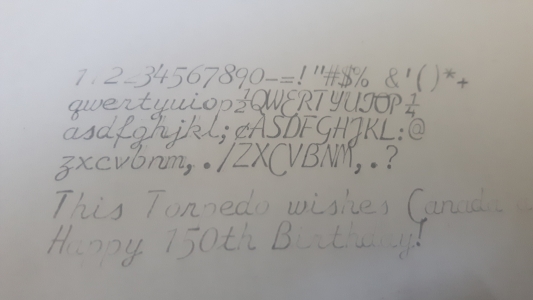 1.2-34567890-=!"#$% &'()*+
qwertyuiop½QWERTYUIOP¼
asdfghjkl;¢ASDFGHJKL:@
zxcvbnm,./ZXCVBNM,.?
This Torpedo wishes Canada a
Happy 150th Birthday!